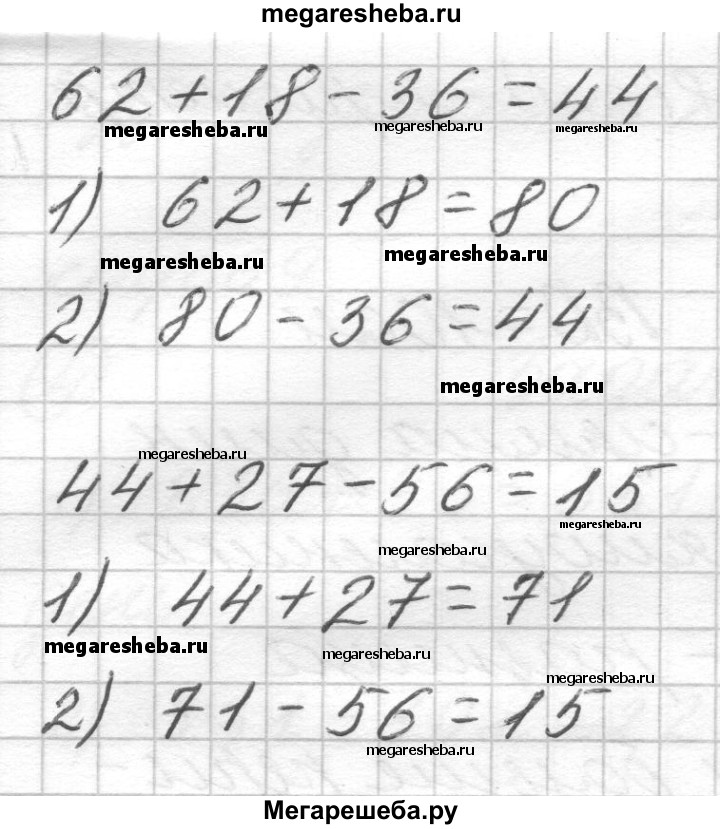 megaresheba.ru
62+18-36=44
megaresheba.ru megaresheba.ru megaresheba.ru
1) 62+18=80
megaresheba.ru megaresheba.ru
2) 80-36=44
megaresheba.ru
megaresheba.ru
44+27-56=15
megaresheba.ru
megaresheba.ru
1) 44+27=71
megaresheba.ru megaresheba.ru
megaresheba.ru
2) 71-56=15
megaresheba.ru
Мегарешеба.ру